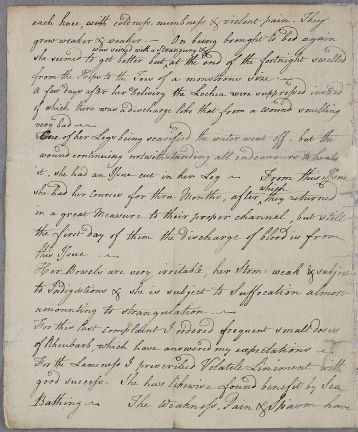 each knee, with coldness, numbness & violent pain. They
grew weaker & weaker. — On being brought to bed again
was seized with a Strangury &
she seemed to get better but, at the end of the fortnight swelled
from the Hips to the Toes of a monstrous size —
A few days after her Delivery the Lochia were suppressed instead
of which there was a discharge like that from a wound smelling
very bad —
One of her Legs being scarified the water went off, but the
wound continuing notwithstanding all endeavours to heal
it, she had an Issue cut in her Leg — From this Issue
she had her courses for three Months, after which they returned
in a great Measure to their proper channel, but still
the first day of them the discharge of blood is from
this Issue —
Her Bowels are very irritable, her Stom: weak & subject
to Indigestions & she is subject to suffocation almost
amounting to strangulation —
For this last complaint I ordered frequent small doses
of Rhubarb which have answered my expectations —
For the Lameness I prescribed Volatile Liniment with
good success. She has likewise found benefit by Sea
Bathing — The Weakness, Pain & Spasm have